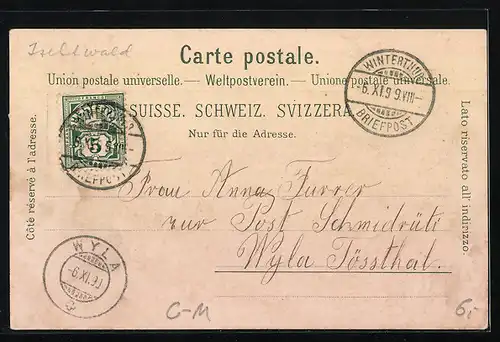 Iseltwald
Carte postale.
Union postale universelle. — Weltpostverein. — Unione postale universale.
SUISSE. SCHWEIZ. SVIZZERA.
Nur für die Adresse.
Côté réservé à l'adresse.
Lato riservato all' indirizzo.
WINTERTHUR
-6.XI.99.VIII-
BRIEFPOST
5
BRIEFPOST
Frau Anna Furrer
zur Post Schmidrüti
Wyla Tössthal.
WYLA
-6.XI.99
C-M
6,-